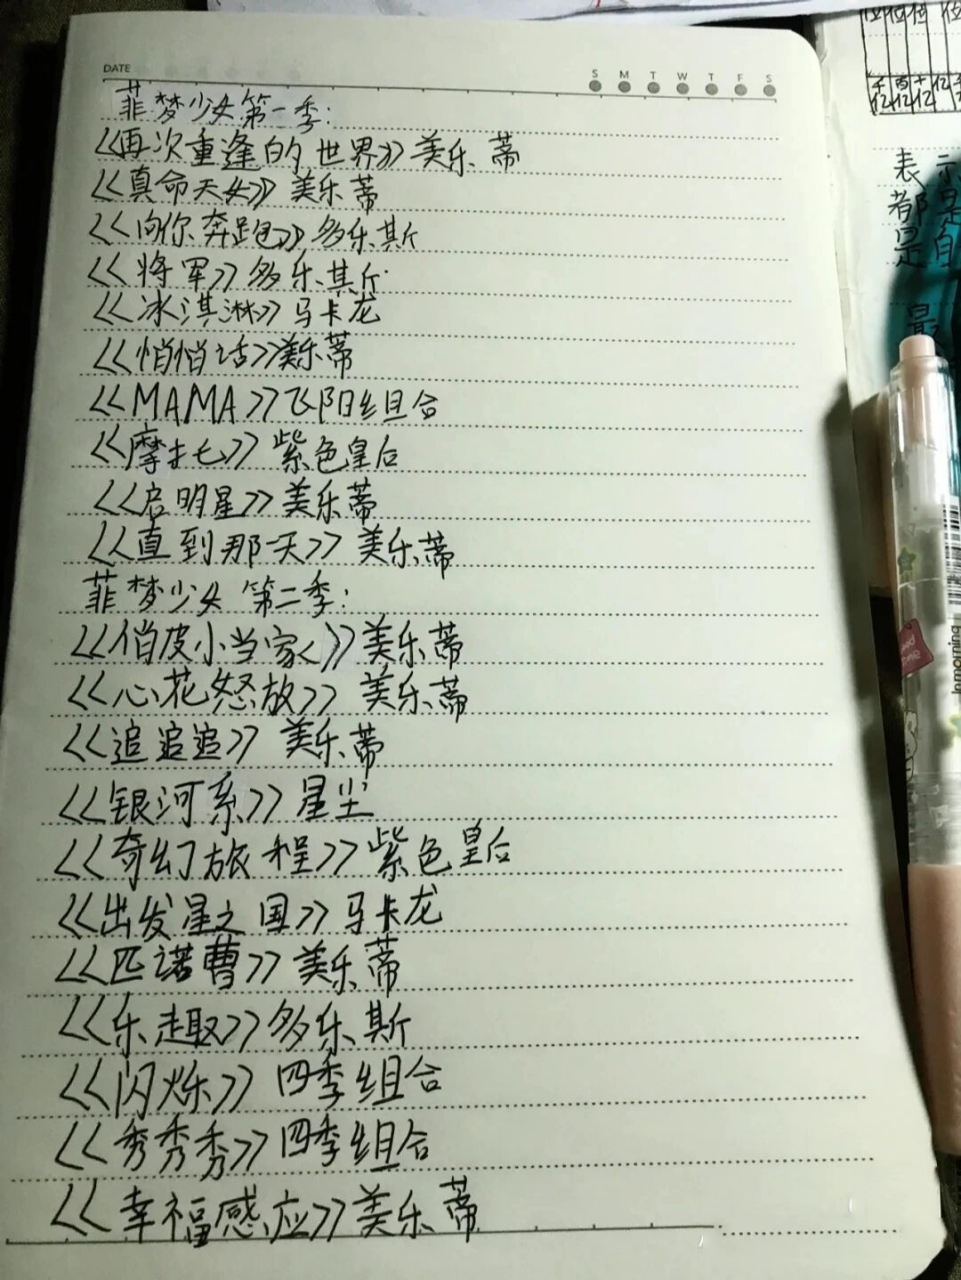 DATE
S M T W T F S
菲梦少女第一季:
《再次重逢的世界》美乐蒂
《真命天女》美乐蒂
《向你奔跑》多乐斯
《将军》多乐斯
《冰淇淋》马卡龙
《悄悄话》美乐蒂
《MAMA》飞阳组合
《摩托》紫色皇后
《启明星》美乐蒂
《直到那一天》美乐蒂
菲梦少女 第二季:
《俏皮小当家》美乐蒂
《心花怒放》美乐蒂
《追追追》美乐蒂
《银河系》星尘
《奇幻旅程》紫色皇后
《出发星之国》马卡龙
《匹诺曹》美乐蒂
《乐趣》多乐斯
《闪烁》四季组合
《秀秀秀》四季组合
《幸福感应》美乐蒂
表示
都是
是自
最